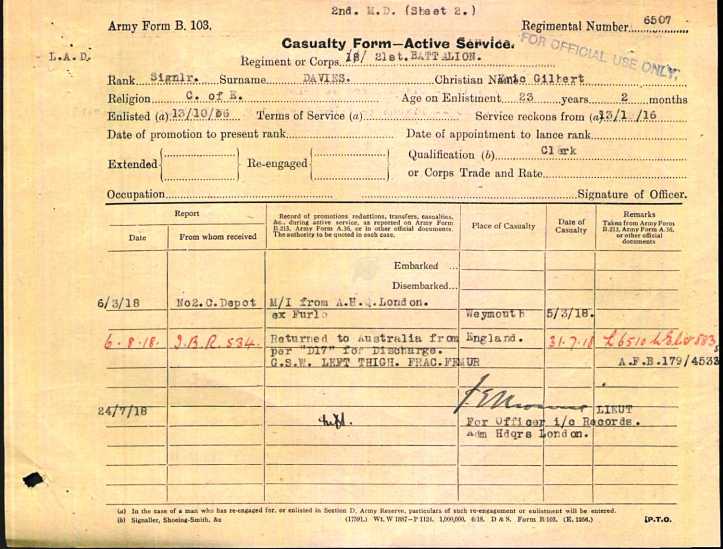 2nd. M.D. (Sheet 2.)
Army Form B. 103.
Regimental Number 6507
Casualty Form—Active Service.
FOR OFFICIAL USE ONLY.
L.A.D.
Regiment or Corps 21st. BATTALION.
Rank Signlr. Surname DAVIES. Christian Name Eric Gilbert
Religion C. of E. Age on Enlistment 23 years 2 months
Enlisted (a) 13/10/ Terms of Service (a) Service reckons from (a) 13/1 /16
Date of promotion to present rank Date of appointment to lance rank
Extended Re-engaged Qualification (b) Clerk
or Corps Trade and Rate
Occupation Signature of Officer.
Report
Date
From whom received
Record of promotions reductions, transfers, casualties,
&c., during active service, as reported on Army Form
B.213, Army Form A.36, or in other official documents.
The authority to be quoted in each case.
Place of Casualty
Date of
Casualty
Remarks
Taken from Army Form
B.213, Army Form A.36,
or other official
documents
Embarked ...
Disembarked...
6/3/18 No2.C.Depot M/I from A.H.Q.London.
ex Furlo Weymouth 5/3/18.
6.8.18. I.B.R. 534. Returned to Australia from England. 31.7.18
per "D17" for Discharge.
G.S.W. LEFT THIGH. FRAC.FEMUR A.F.B.179/4533
24/7/18 LIEUT
For Officer i/c Records.
Adm Hdqrs London.
(a) In the case of a man who has re-engaged for, or enlisted in Section D, Army Reserve, particulars of such re-engagement or enlistment will be entered.
(b) Signaller, Shoeing-Smith, &c (17591.) Wt. W 1887—P 1124. 1,000,000. 6/18. D & S. Form B/103. (E. 1256.) [P.T.O.